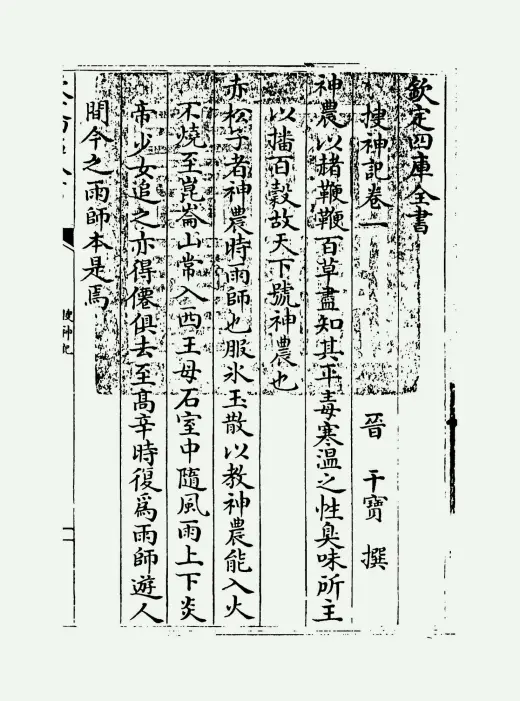 欽定四庫全書
搜神記卷一
晉 干寶 撰
神農以赭鞭鞭百草盡知其平毒寒温之性臭味所主
以播百穀故天下號神農也
赤松子者神農時雨師也服氷玉散以教神農能入火
不燒至崑崙山常入西王母石室中隨風雨上下炎
帝少女追之亦得僊俱去至髙辛時復爲雨師遊人
間今之雨師本是焉
搜神記